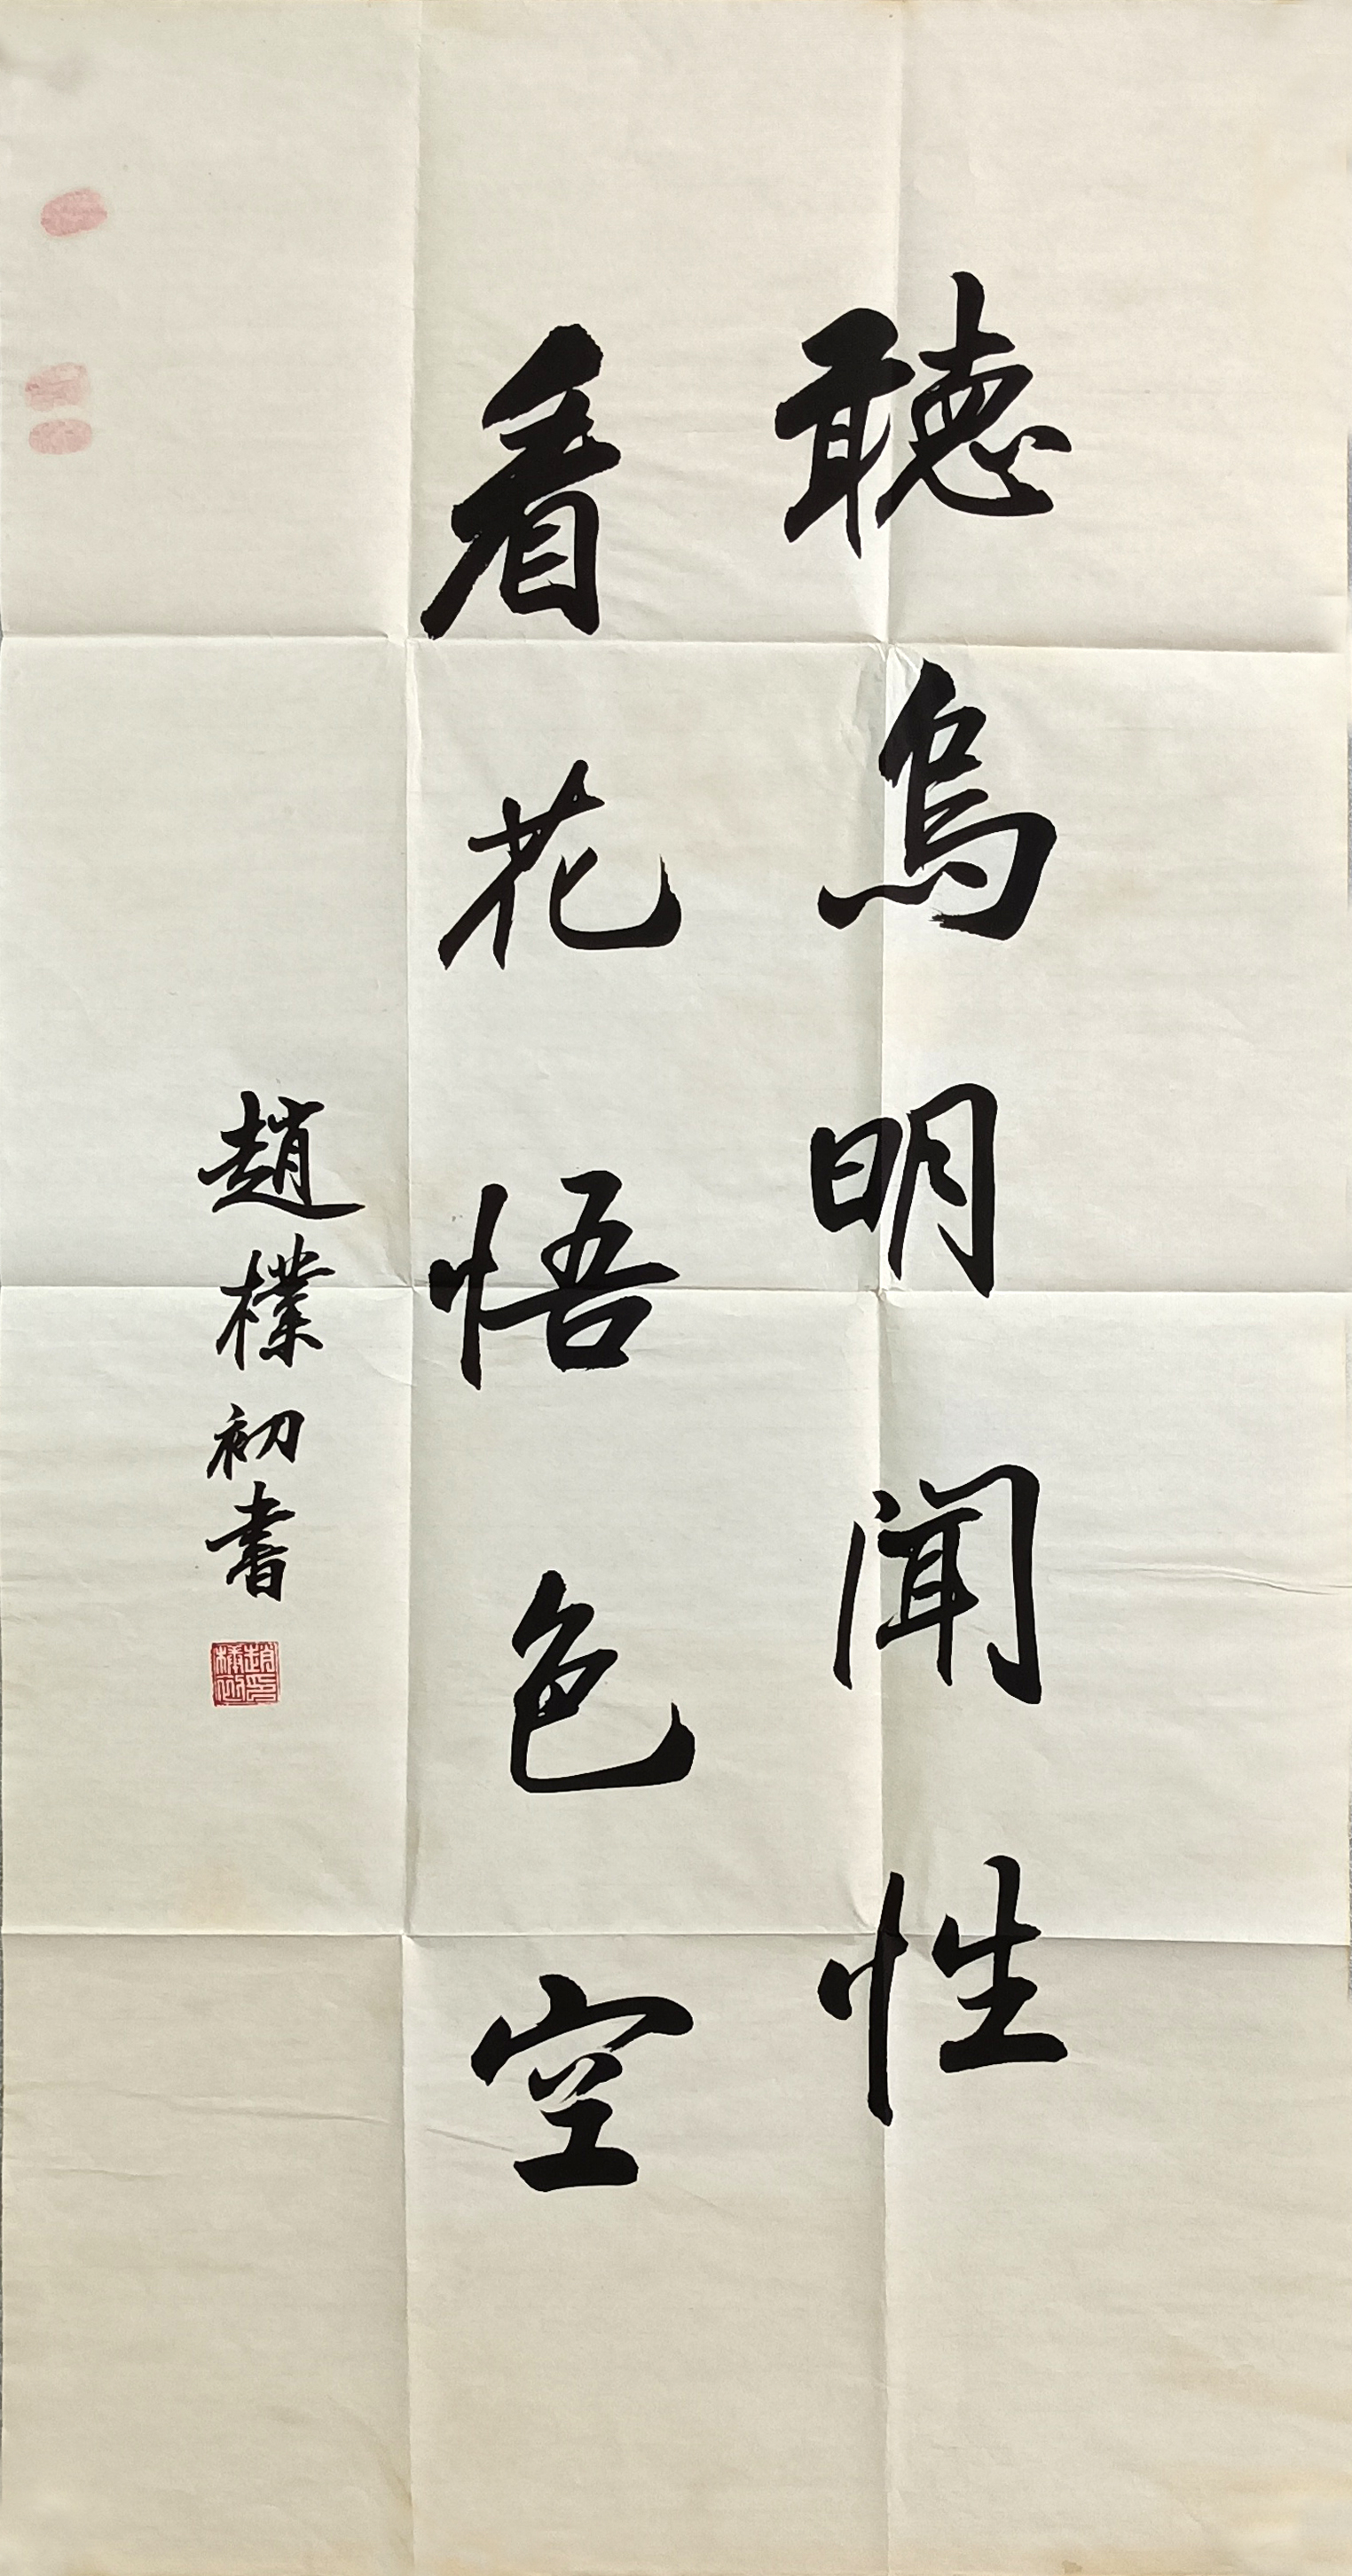 聽鳥明聞性
看花悟色空
趙樸初書